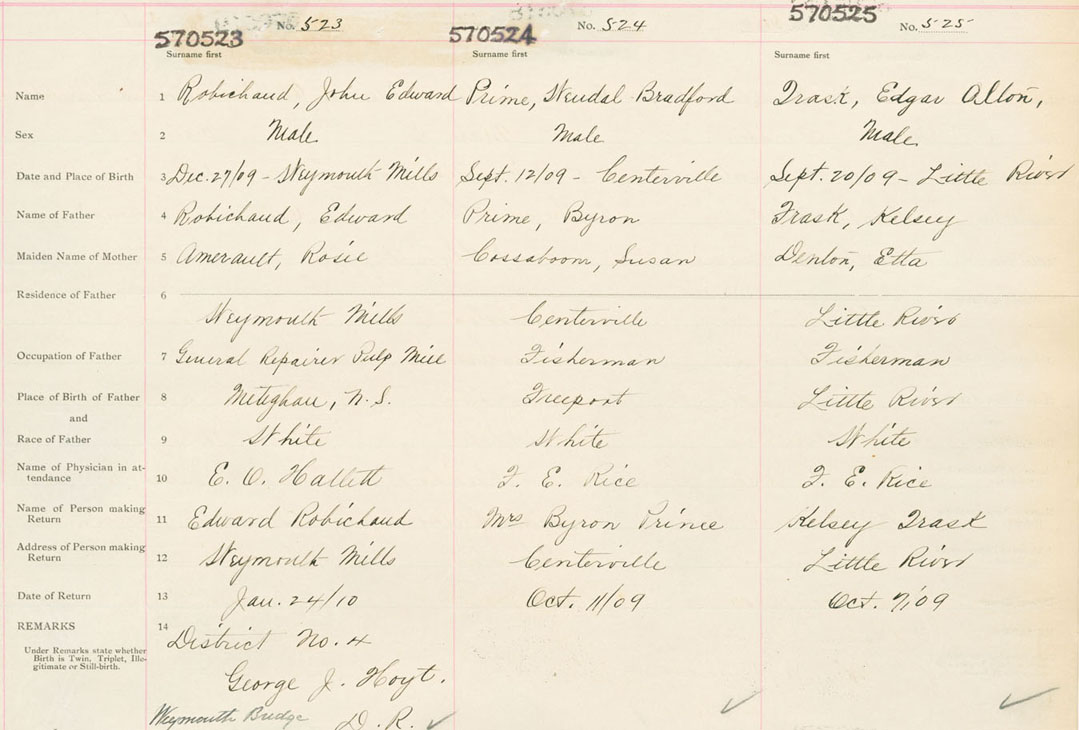 570523 No. 523 570524 No. 524 570525 No. 525
Surname first Surname first Surname first
Name 1 Robichaud, John Edward Prime, Wendal Bradford Trask, Edgar Alton,
Sex 2 Male Male Male
Date and Place of Birth 3 Dec. 27/09 - Weymouth Mills Sept. 12/09 - Centerville Sept. 20/09 - Little River
Name of Father 4 Robichaud, Edward Prime, Byron Trask, Kelsey
Maiden Name of Mother 5 Amerault, Rosie Cossaboom, Susan Denton, Etta
Residence of Father 6
Weymouth Mills Centerville Little River
Occupation of Father 7 General Repairer Pulp Mill Fisherman Fisherman
Place of Birth of Father 8 Meteghan, N.S. Freeport Little River
and
Race of Father 9 White White White
Name of Physician in at-
tendance 10 E. O. Hallett F. E. Rice F. E. Rice
Name of Person making
Return 11 Edward Robichaud Mrs Byron Prince Kelsey Trask
Address of Person making
Return 12 Weymouth Mills Centerville Little River
Date of Return 13 Jan. 24/10 Oct. 11/09 Oct. 7/09
REMARKS 14 District No. 4
Under Remarks state whether
Birth is Twin, Triplet, Ille-
gitimate or Still-birth.
George J. Hoyt.
Weymouth Bridge D.R.